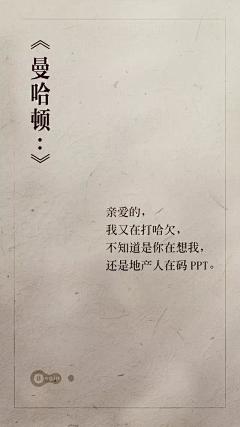 《曼哈顿：》
亲爱的，
我又在打哈欠，
不知道是你在想我，
还是地产人在码 PPT。